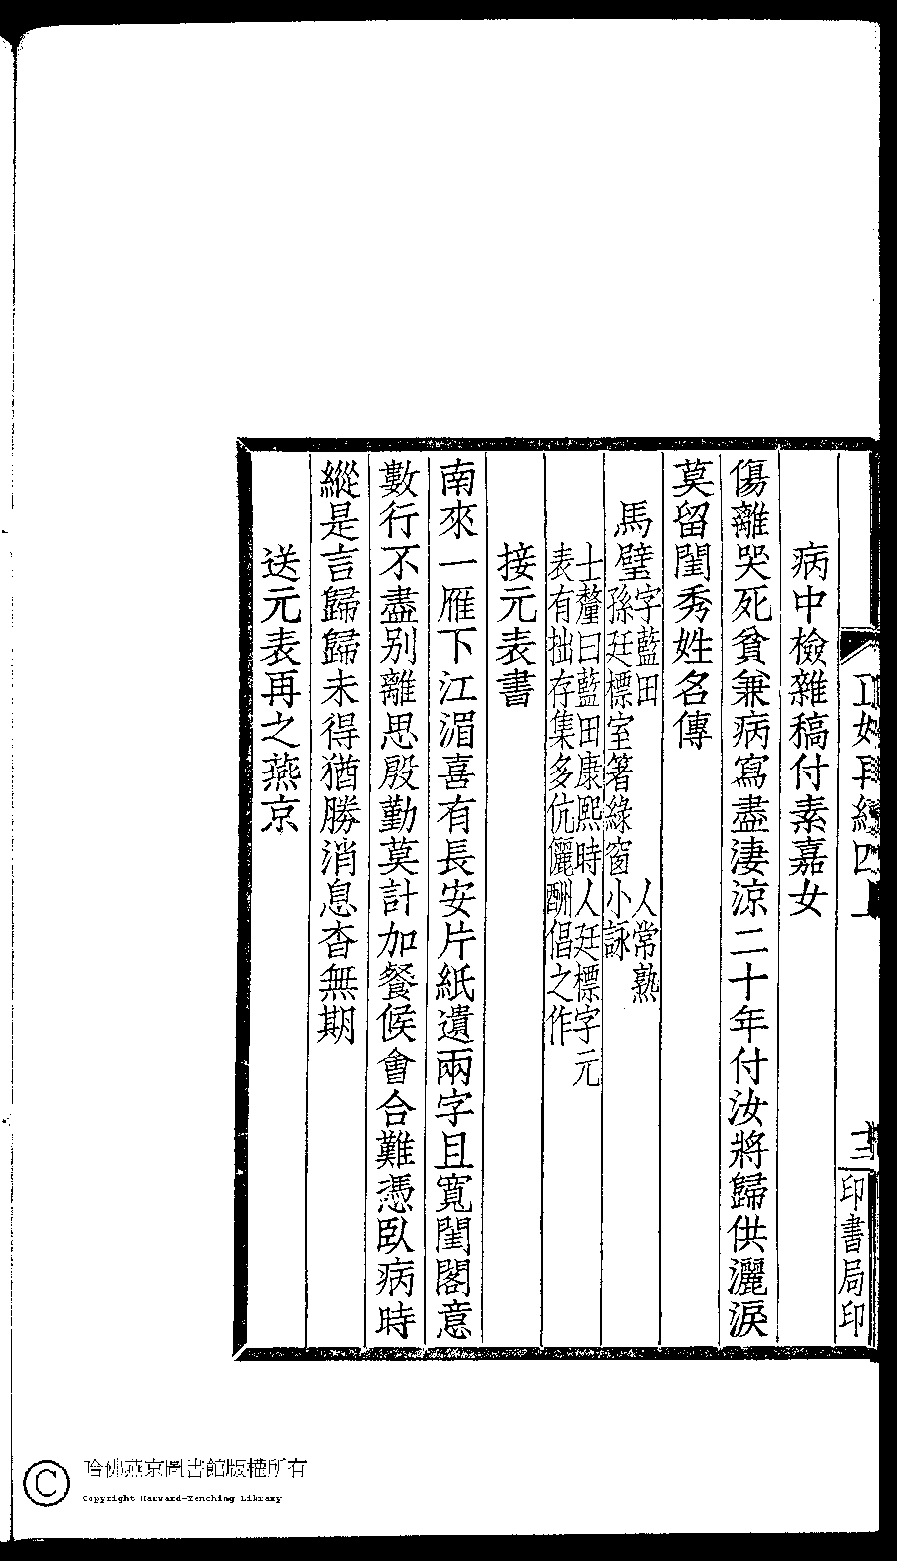 印書局印
病中檢雜稿付素嘉女
傷離哭死貧兼病寫盡淒涼二十年付汝將歸供灑淚
莫留閨秀姓名傳
馬璧
字藍田　人常熟
孫廷標室箸綠窗小詠
士釐曰藍田康熙時人廷標字元
表有拙存集多伉儷酬倡之作
接元表書
南來一雁下江湄喜有長安片紙遺兩字且寬閨閣意
數行不盡别離思殷勤莫計加餐候會合難憑臥病時
縱是言歸歸未得猶勝消息杳無期
送元表再之燕京
哈佛燕京圖書館版權所有
Copyright Harvard-Yenching Library